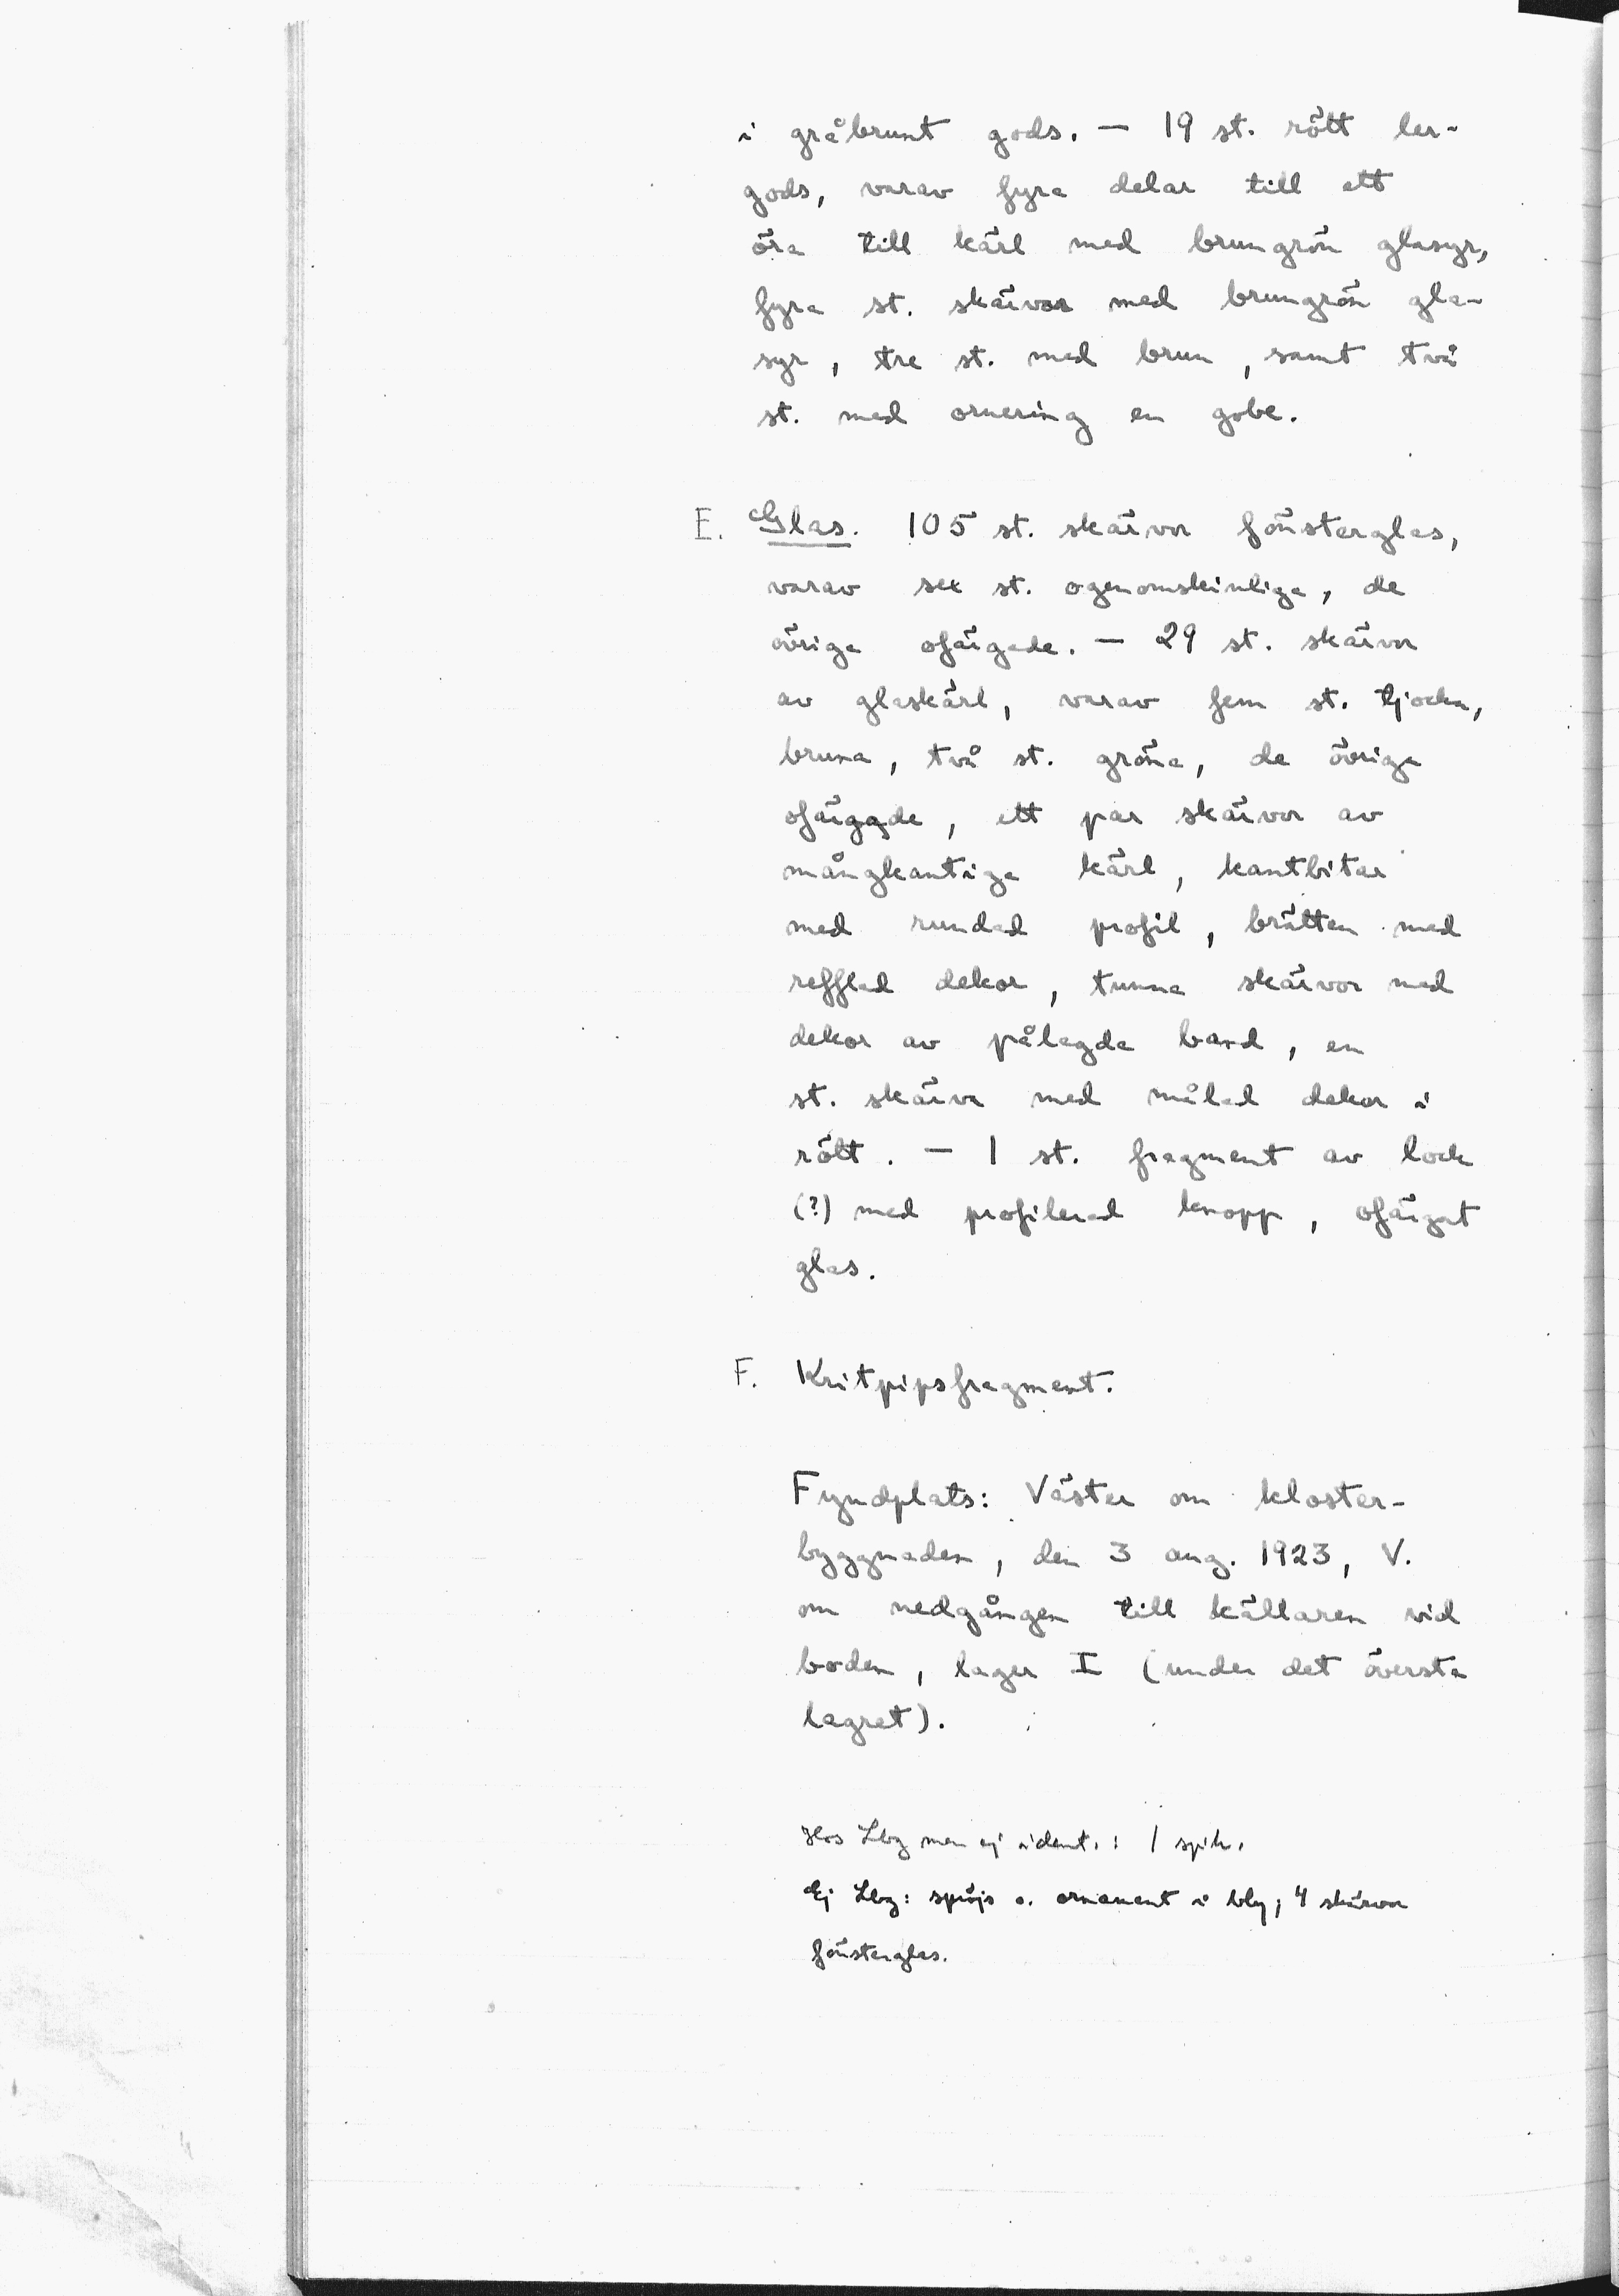 i gråbrunt gods. — 19 st. rött ler-
gods, varav fyra delar till ett
öra till kärl med brungrön glasyr,
fyra st. skärvor med brungrön gla-
syr, tre st. med brun, samt två
st. med ornering en gobe.
E. Glas. 105 st. skärvor fönsterglas,
varav sex st. ogenomskinliga, de
övriga ofärgade. — 29 st. skärvor
av glaskärl, varav fem st. tjocka,
bruna, två st. gröna, de övriga
ofärgade, ett par skärvor av
mångkantiga kärl, kantbitar
med rundad profil, brätten med
refflad dekor, tunna skärvor med
dekor av pålagda band, en
st. skärva med målad dekor i
rött. — 1 st. fragment av lock
(?) med profilerad knopp, ofärgat
glas.
F. Kritpipsfragment.
Fyndplats: Väster om kloster-
byggnaden, den 3 aug. 1923, V.
om nedgången till källaren vid
boden, lager I (under det översta
lagret).
Hos Lbg men ej ident.: 1 spik.
Ej Lbg: spröjs o. ornament i bly; 4 skärvor
fönsterglas.